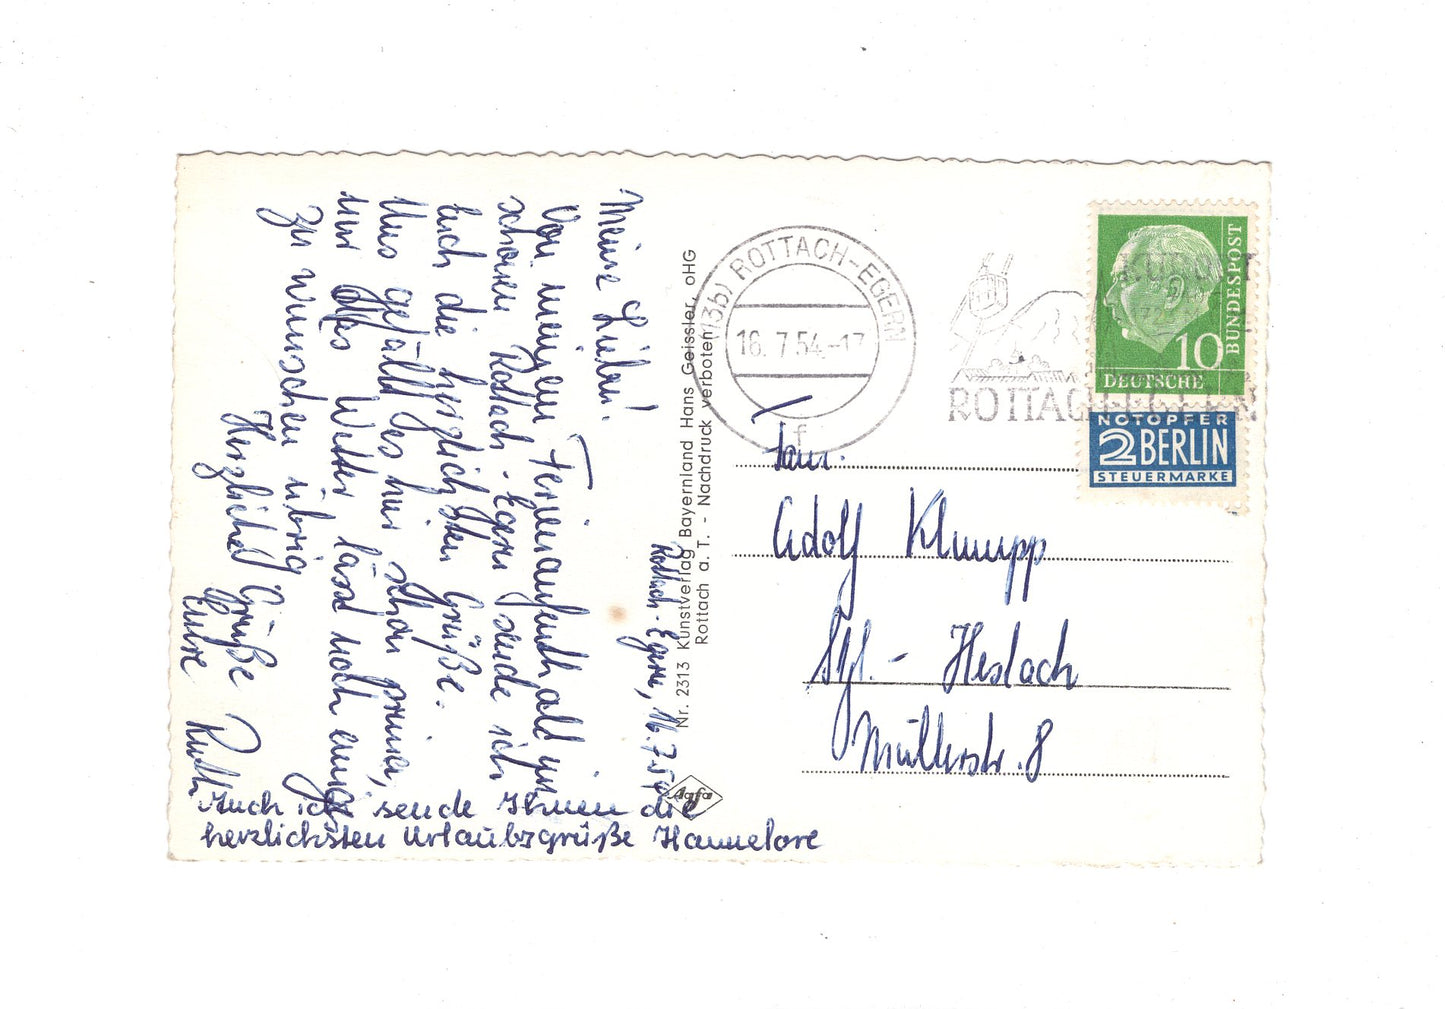 Rottach-Egern, 16.7.54
Meine Lieben!
Von meinem Ferienaufenthalt im
schönen Rottach-Egern sende ich
Euch die herzlichsten Grüße.
Uns gefällt es hier schon prima,
nur das Wetter lässt noch einiges
zu wünschen übrig
Herzliche Grüße
Eure Ruth
Auch ich sende Ihnen die
herzlichsten Urlaubsgrüße Hannelore
Nr. 2313 Kunstverlag Bayernland Hans Geissler, oHG
Rottach a. T. - Nachdruck verboten
Agfa
(13b) ROTTACH-EGERN
16.7.54.-17
f
KURORT
ROTTACH-EGERN
DEUTSCHE
BUNDESPOST
10
NOTOPFER
2 BERLIN
STEUERMARKE
Fam.
Adolf Klumpp
Stgt.- Heslach
Müllerstr. 8